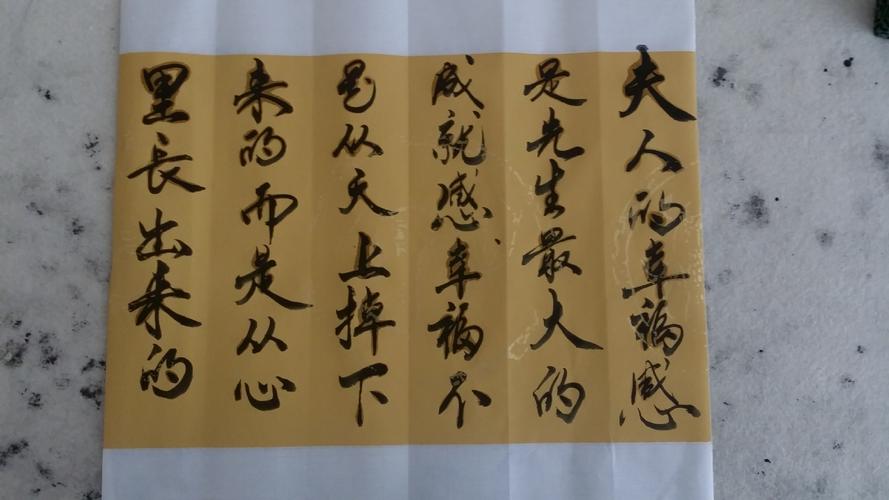 夫人的幸福感
是先生最大的
成就感幸福不
是从天上掉下
来的而是从心
里长出来的